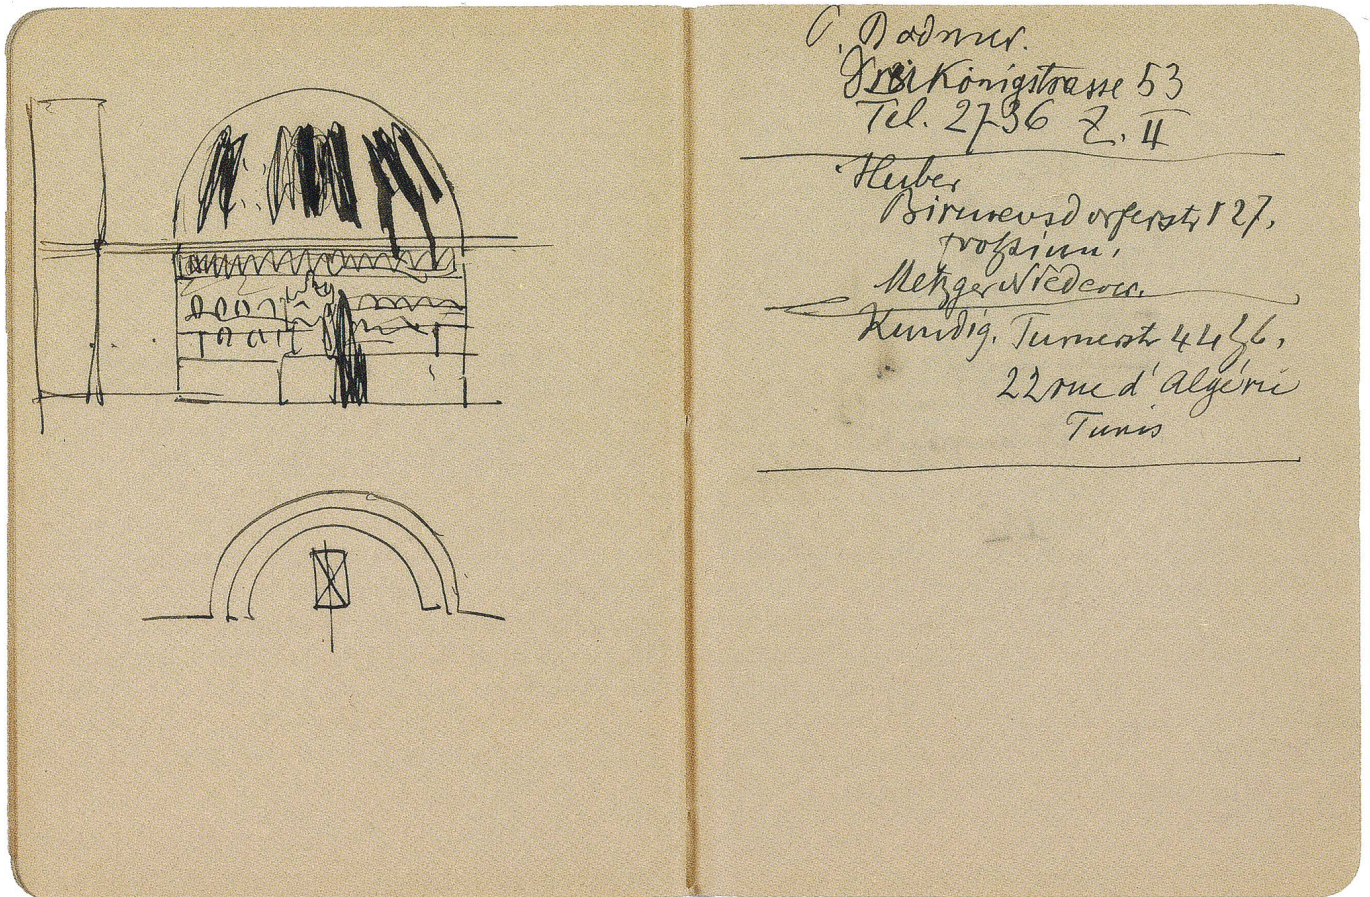 C. Bodmer.
Dreikönigstrasse 53
Tel. 27 36 Z. II
Huber
Birmensdorferstr 127,
Metzger Niederer.
Kundig. Turnerstr 44
22 rue d'Algérie
Tunis